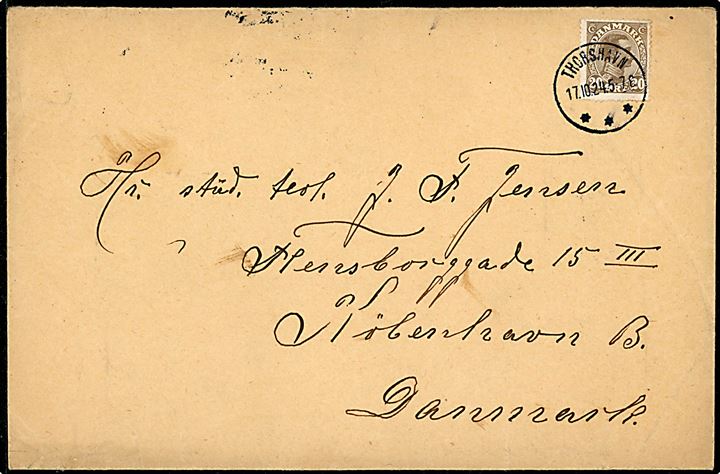 DANMARK
20 20
THORSHAVN
17.10.24.5-7E
Hr. stud. teol. J. F. Jensen
Flensborggade 15 III
København B.
Danmark.